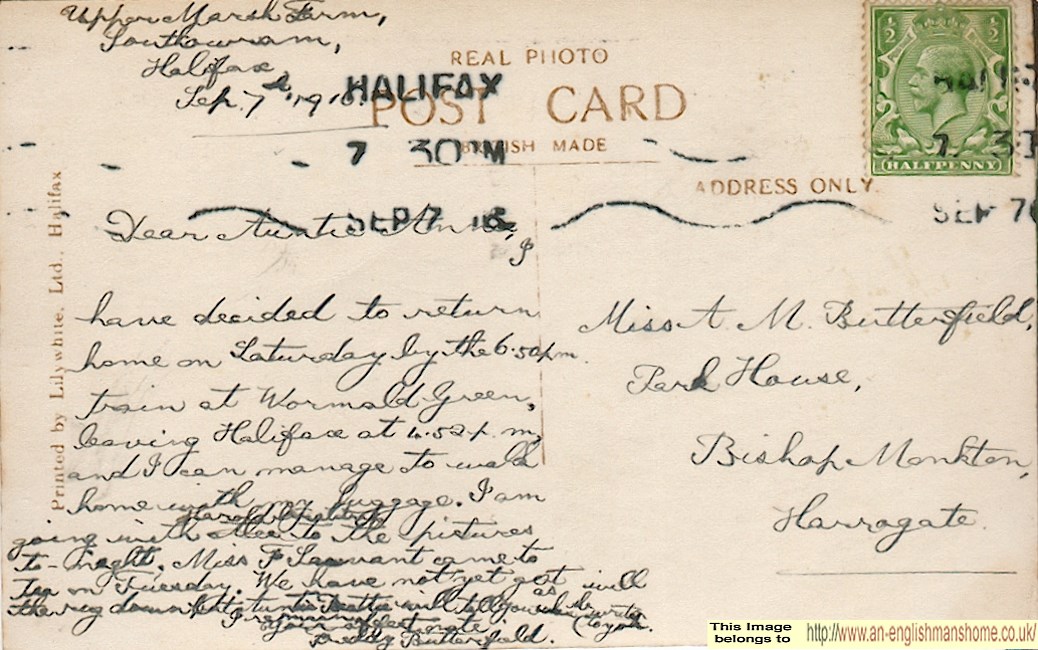 Upper Marsh Farm,
Southowram,
Halifax
Sep. 7th, 191
REAL PHOTO
POST CARD
BRITISH MADE
HALIFAX
7 30 PM
SEP 7
HALFPENNY
ADDRESS ONLY.
Printed by Lilywhite, Ltd., Halifax
Dear Auntie Annie,
I
have decided to return
home on Saturday by the 6.50 p.m.
train at Wormald Green,
leaving Halifax at 4.52 p.m,
and I can manage to walk
home with my luggage. I am
going with to the pictures
to-night. Miss F came to
tea on Tuesday. We have not yet got
the rug down but Auntie will tell you
I remain
Your affectionate
Butterfield.
Miss A. M. Butterfield,
Park House,
Bishop Monkton,
Harrogate.
This Image
belongs to
http://www.an-englishmanshome.co.uk/